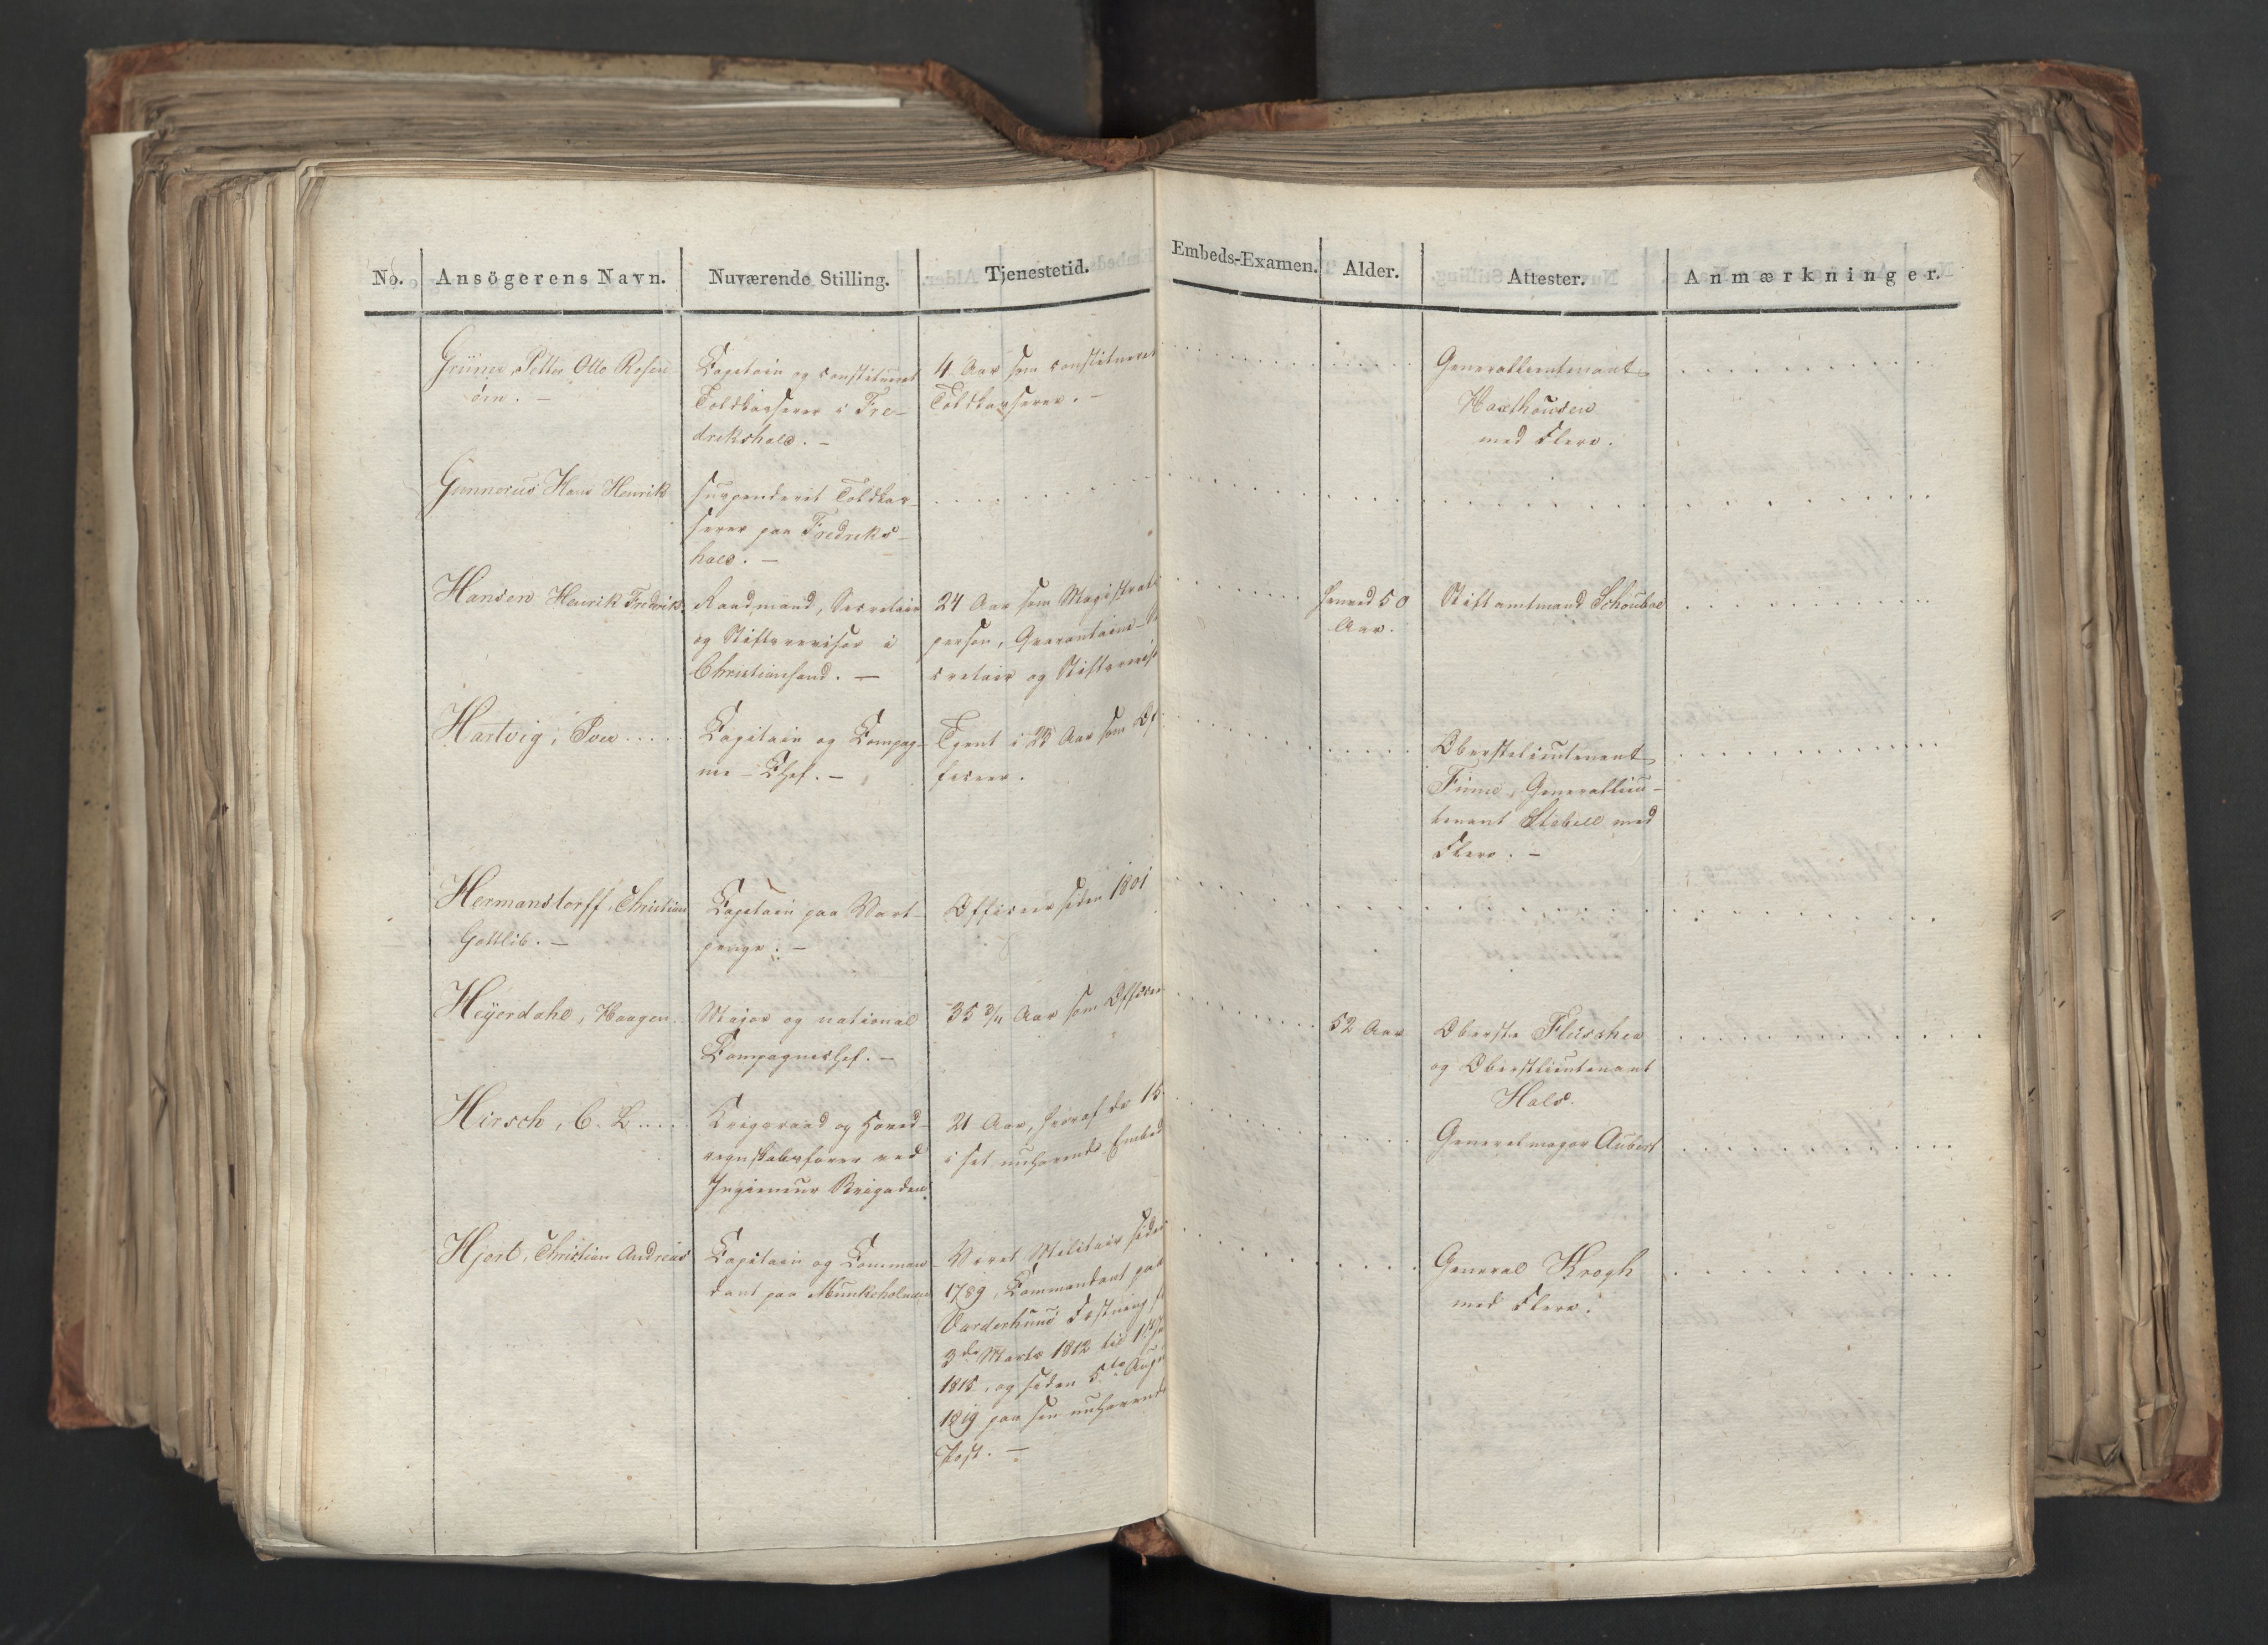 No. Ansögerens Navn. Nuværende Stilling. Tjenestetid. Embeds-Examen. Alder. Attester. Anmærkninger.
Grüner Petter Otto Rosen
ørn. –
Capitain og constitueret
Toldkasserer i Fre-
drikshald. –
4 Aar som constitueret
Toldkasserer. –
Generallieutenant
Haxthausen
med Flere.
Gunnerus Hans Henrik
suspenderet Toldkas-
serer paa Fredriks-
hald. –
Hansen Henrik Fredrik
Raadmand, Secretair
og Stiftsrevisor i
Christiansand. –
24 Aar som Magistrats
person, Qvarantaine-Se
cretair og Stiftsrevis
henved 50
Aar.
Stiftamtmand Schouboe
Hartvig, Iver
Capitain og Compag-
nie-Chef. –
Tjent i 23 Aar som Of
ficeer.
Oberstelieutenant
Finne, Generallieu-
tenant Stabell med
Flere. –
Hermanstorff, Christian
Gottlib. –
Capitain paa Vart-
penge. –
Officeer siden 1801
Heyerdahl, Haagen
Major og national
Compagniechef. –
35 Aar som Officeer
52 Aar
Oberste Fleischer
og Oberstlieutenant
Hals.
Hirsch, C. L.
Krigsraad og Hoved-
regnskabsfører ved
Ingenieur Brigaden.
21 Aar, heraf de 15
i set nuhavende Embed
Generalmajor Aubert
Hjort, Christian Andreas
Capitain og Comman-
dant paa Munkeholmen
Været Militair siden
1789, Commandant paa
Vardøehuus Fæstning f
3de Marts 1812 til
1815, og siden 5te Augu
1819 paa sen nuhavende
Post. –
General Krogh
med Flere.